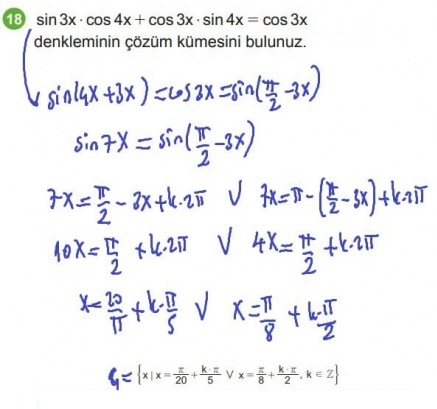 18 sin 3x · cos 4x + cos 3x · sin 4x = cos 3x
denkleminin çözüm kümesini bulunuz.
sin(4x+3x) = cos3x = sin(π/2 - 3x)
sin7x = sin(π/2 - 3x)
7x = π/2 - 3x + k·2π ∨ 7x = π - (π/2 - 3x) + k·2π
10x = π/2 + k·2π ∨ 4x = π/2 + k·2π
x = 20/π + k·π/5 ∨ x = π/8 + k·π/2
Ç = {x | x = π/20 + k·π/5 ∨ x = π/8 + k·π/2, k ∈ ℤ}